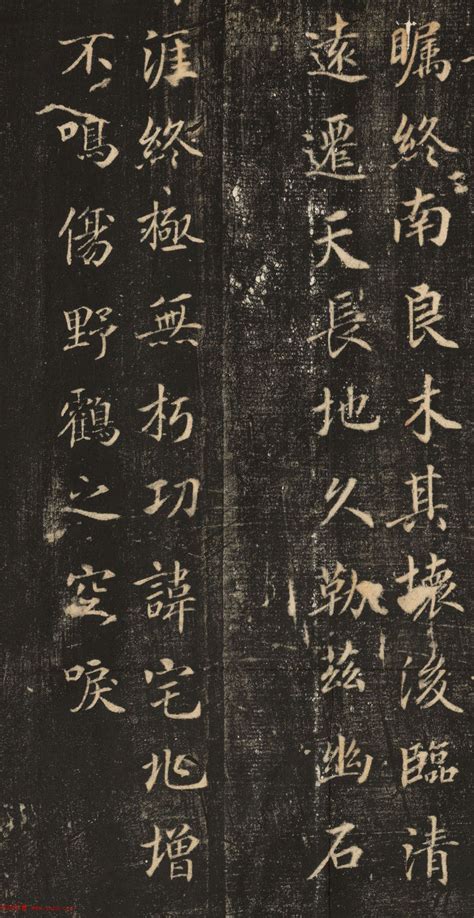 矚終南良木其壞浚臨清
遠遷天長地久勒茲幽石
涯終極無朽功諱宅兆增
不鳴傷野鶴之空唳